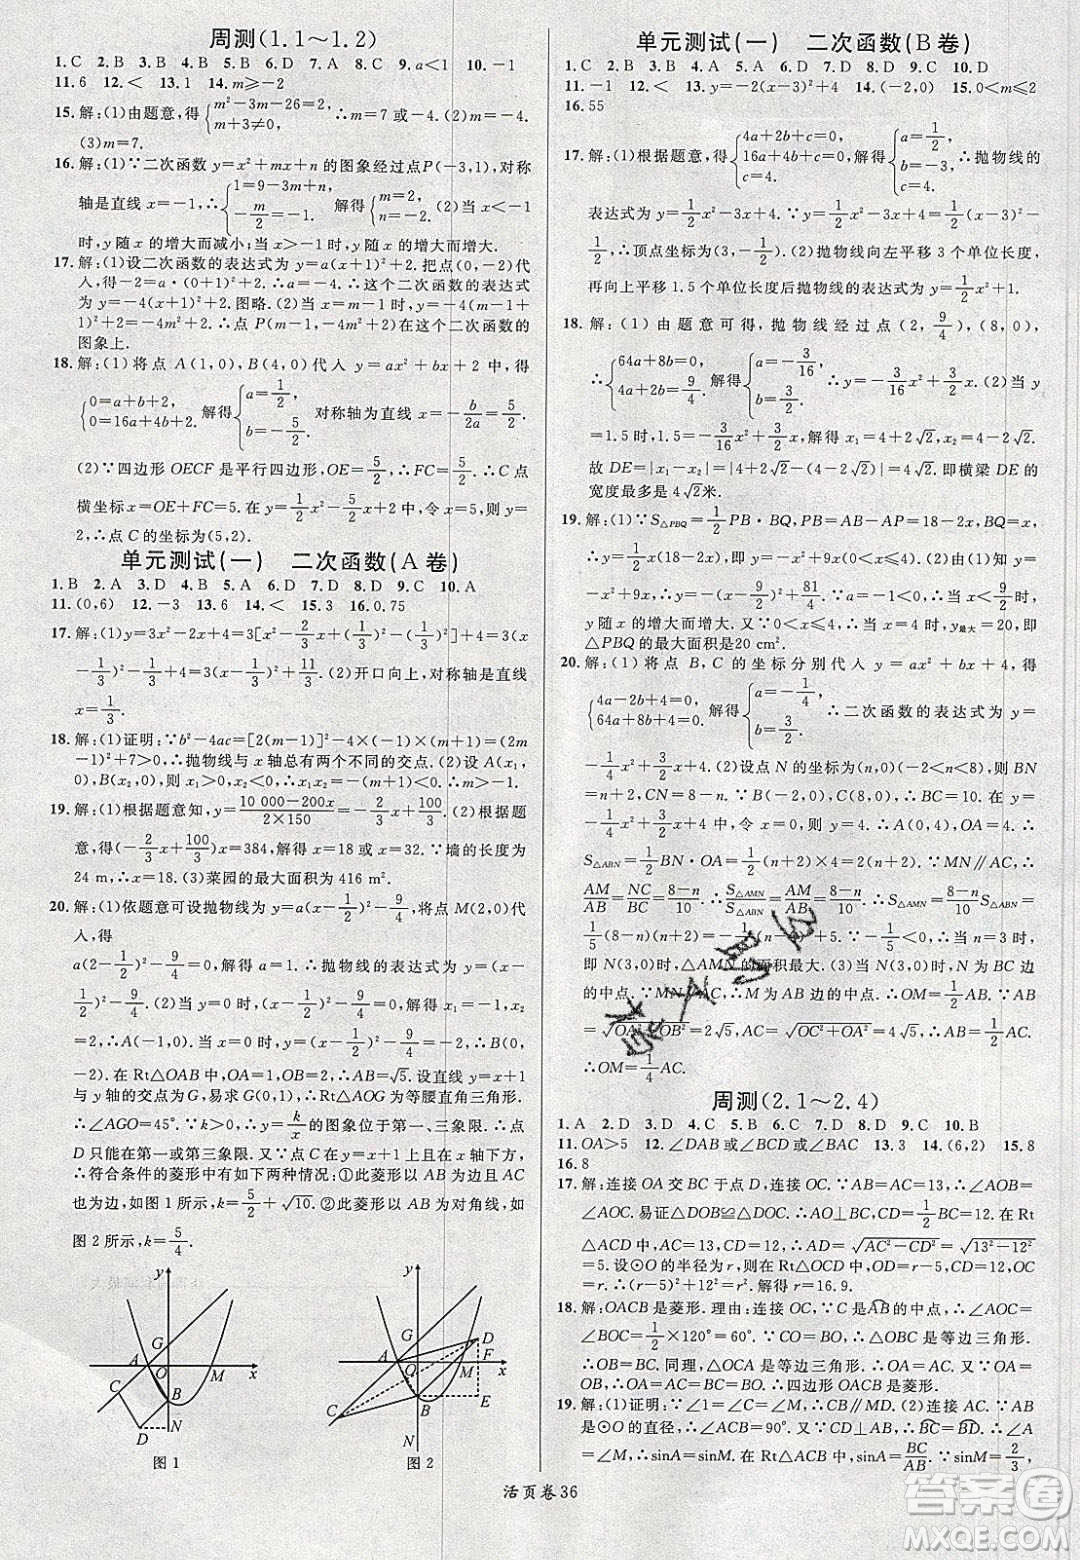 周测(1.1～1.2)
1.C 2.B 3.C 4.B 5.D 6.D 7.A 8.C 9.a<1 10.-1
11.6 12.< 13.1 14.m≥-2
15.解:(1)由题意,得{m²-3m-26=2, m+3≠0. 解得m=-4.(2)m=-4.
(3)m=7.
16.解:(1)∵二次函数y=x²+mx+n的图象经过点P(-3,1),对称
轴是直线x=-1,∴{1=9-3m+n, -m/2=-1. 解得{m=2, n=-2. (2)当x<-1
时,y随x的增大而减小;当x>-1时,y随x的增大而增大.
17.解:(1)设二次函数的表达式为y=a(x+1)²+2.把点(0,-2)代
入,得-2=a·(0+1)²+2.∴a=-4.∴这个二次函数的表达式
为y=-4(x+1)²+2.图略.(2)当x=1时,y=-4×(1+1)²+2
=-14.∴点P(1,-14)在这个二次函数的
图象上.
18.解:(1)将点A(1,0),B(4,0)代入y=ax²+bx+2中,得
{0=a+b+2, 0=16a+4b+2. 解得{a=1/2, b=-5/2. 对称轴为直线x=-b/2a=5/2.
(2)∵四边形OECF是平行四边形,OE=5/2,∴FC=5/2.∴C点
横坐标x=OE+FC=5.在y=1/2x²-5/2x+2中,令x=5,得y=
2,∴点C的坐标为(5,2).
单元测试(一) 二次函数(A卷)
1.B 2.A 3.D 4.B 5.A 6.D 7.D 8.D 9.C 10.A
11.(0,6) 12.-3 13.6 14.< 15.3 16.0.75
17.解:(1)y=3x²-2x+4=3[x²-2/3x+(1/3)²-(1/3)²]+4=3(x-
1/3)²-1/3+4=3(x-1/3)²+11/3.(2)开口向上,对称轴是直线
x=1/3.
18.解:(1)证明:∵b²-4ac=[2(m-1)]²-4×(-1)×(m+1)=(2m
-1)²+7>0,∴抛物线与x轴总有两个不同的交点.(2)设A(x₁,
0),B(x₂,0),则x₁>0,x₂<0.∴x₁x₂=-(m+1)<0.∴m>-1.
19.解:(1)根据题意知,y=10 000-200x/2×150=-2/3x+100/3.(2)根据题
意,得(-2/3x+100/3)x=384,解得x=18或x=32.∵墙的长度为
24 m,∴x=18.(3)菜园的最大面积为416 m².
20.解:(1)依题意可设抛物线为y=a(x-1/2)²-9/4,将点M(2,0)代
入,得
a(2-1/2)²-9/4=0,解得a=1.∴抛物线的表达式为y=(x-
1/2)²-9/4.(2)当y=0时,(x-1/2)²-9/4=0,解得x₁=-1,x₂
=2,∴A(-1,0).当x=0时,y=(0-1/2)²-9/4=-2,∴B(0,
-2).在Rt△OAB中,OA=1,OB=2,∴AB=√5.∵直线y=x+1
与y轴的交点为G(0,1),∴Rt△AOG为等腰直角三角形.
∴∠AGO=45°.∵k>0,∴y=k/x的图象位于第一、三象限.∴点
D只能在第一、三象限.∵直线y=x+1经过第一、二、三象限,
∴符合条件的菱形有如下两种情况:①此菱形以AB为边且AC
也为边,如图1所示,k=5/2+√10.②此菱形以AB为对角线,如
图2所示,k=5/4.
y G A O B M x C D N 图1
y G D A O F M x C B E N 图2
单元测试(一) 二次函数(B卷)
1.C 2.C 3.B 4.A 5.A 6.D 7.A 8.C 9.C 10.D
11.-1 12.< 13.y=-2(x-3)²+4 14.(-2,0) 15.0<m≤2
16.55
17.解:(1)根据题意,得{4a+2b+c=0, 16a+4b+c=0, c=4. 解得{a=1/2, b=-3, c=4. ∴抛物线的
表达式为y=1/2x²-3x+4.(2)∵y=1/2x²-3x+4=1/2(x-3)²
-1/2,∴顶点坐标为(3,-1/2).(2)抛物线向左平移3个单位长度,
再向上平移1.5个单位长度后抛物线的表达式为y=1/2x²+1.
18.解:(1)由题意可得,抛物线经过点(2,9/4),(8,0),
∴{64a+8b=0, 4a+2b=9/4. 解得{a=-3/16, b=3/2. ∴y=-3/16x²+3/2x.(2)当y
=1.5时,1.5=-3/16x²+3/2x,解得x₁=4+2√2,x₂=4-2√2.
故DE=|x₁-x₂|=|4+2√2-(4-2√2)|=4√2.即横梁DE的
宽度最多是4√2米.
19.解:(1)∵S△PBQ=1/2PB·BQ,PB=AB-AP=18-2x,BQ=
x,∴y=1/2(18-2x)x,即y=-x²+9x(0<x≤4).(2)由(1)知y=
-x²+9x,∴y=-(x-9/2)²+81/4.∵a=-1<0,∴当x≤9/2时,
y随x的增大而增大.又∵0<x≤4,∴当x=4时,y最大=20,即
△PBQ的最大面积是20 cm².
20.解:(1)将点B,C的坐标分别代入y=ax²+bx+4,得
{4a-2b+4=0, 64a+8b+4=0. 解得{a=-1/4, b=3/2. ∴二次函数的表达式为y=
-1/4x²+3/2x+4.(2)设点N的坐标为(n,0)(-2<n<8),则BN
=n+2,CN=8-n.∵B(-2,0),C(8,0),∴BC=10.在y=
-1/4x²+3/2x+4中,令x=0,得y=4,∴A(0,4),OA=4.∴
S△ABN=1/2BN·OA=1/2(n+2)×4=2(n+2).∵MN∥AC,∴
AM/AB=NC/BC=8-n/10.∴S△AMN/S△ABN=AM/AB=8-n/10.∴S△AMN=8-n/10S△ABN=
1/5(8-n)(n+2)=-1/5(n-3)²+5.∵-1/5<0,∴当n=3时,
即N(3,0)时,△AMN的面积最大.(3)当N(3,0)时,N为BC边
的中点.∵MN∥AC,∴M为AB边的中点.∴OM=1/2AB.∵AB
=√OA²+OB²=2√5,AC=√OC²+OA²=4√5,∴AB=1/2AC.
∴OM=1/4AC.
周测(2.1～2.4)
1.A 2.D 3.D 4.C 5.D 6.B 7.B 8.D 9.C 10.C
11.OA>5 12.∠DAB或∠BCD或∠BAC 13.3 14.(6,2) 15.8
16.8
17.解:连接OA交BC于点D,连接OC,OB.∵AB=AC=13,∴∠AOB
=∠AOC.易证△DOB≌△DOC.∴AO⊥BC,CD=1/2BC=12.在Rt
△ACD中,AC=13,CD=12,∴AD=√AC²-CD²=√13²-12²
=5.设⊙O的半径为r,则在Rt△OCD中,OD=r-5,CD=12,OC
=r.∴(r-5)²+12²=r².解得r=16.9.
18.解:OACB是菱形.理由:连接OC,∵C是AB的中点,∴∠AOC=
∠BOC=1/2×120°=60°.∵CO=BO,∴△OBC是等边三角形.
∴OB=BC.同理,△OCA是等边三角形.∴OA=AC.又∵OA=
OB,∴OA=AC=BC=BO.∴四边形OACB是菱形.
19.解:(1)证明:∵∠1=∠C,∠1=∠M,∴∠C=∠M.∴CB∥MD.(2)连接AC,∵AB
是⊙O的直径,∴∠ACB=90°.∵CD⊥AB,∴BC=BD.∴∠A
=∠M,∴sinA=sinM.在Rt△ACB中,sinA=BC/AB.∵sinM=
活页卷36
答案圈
MXQE.COM